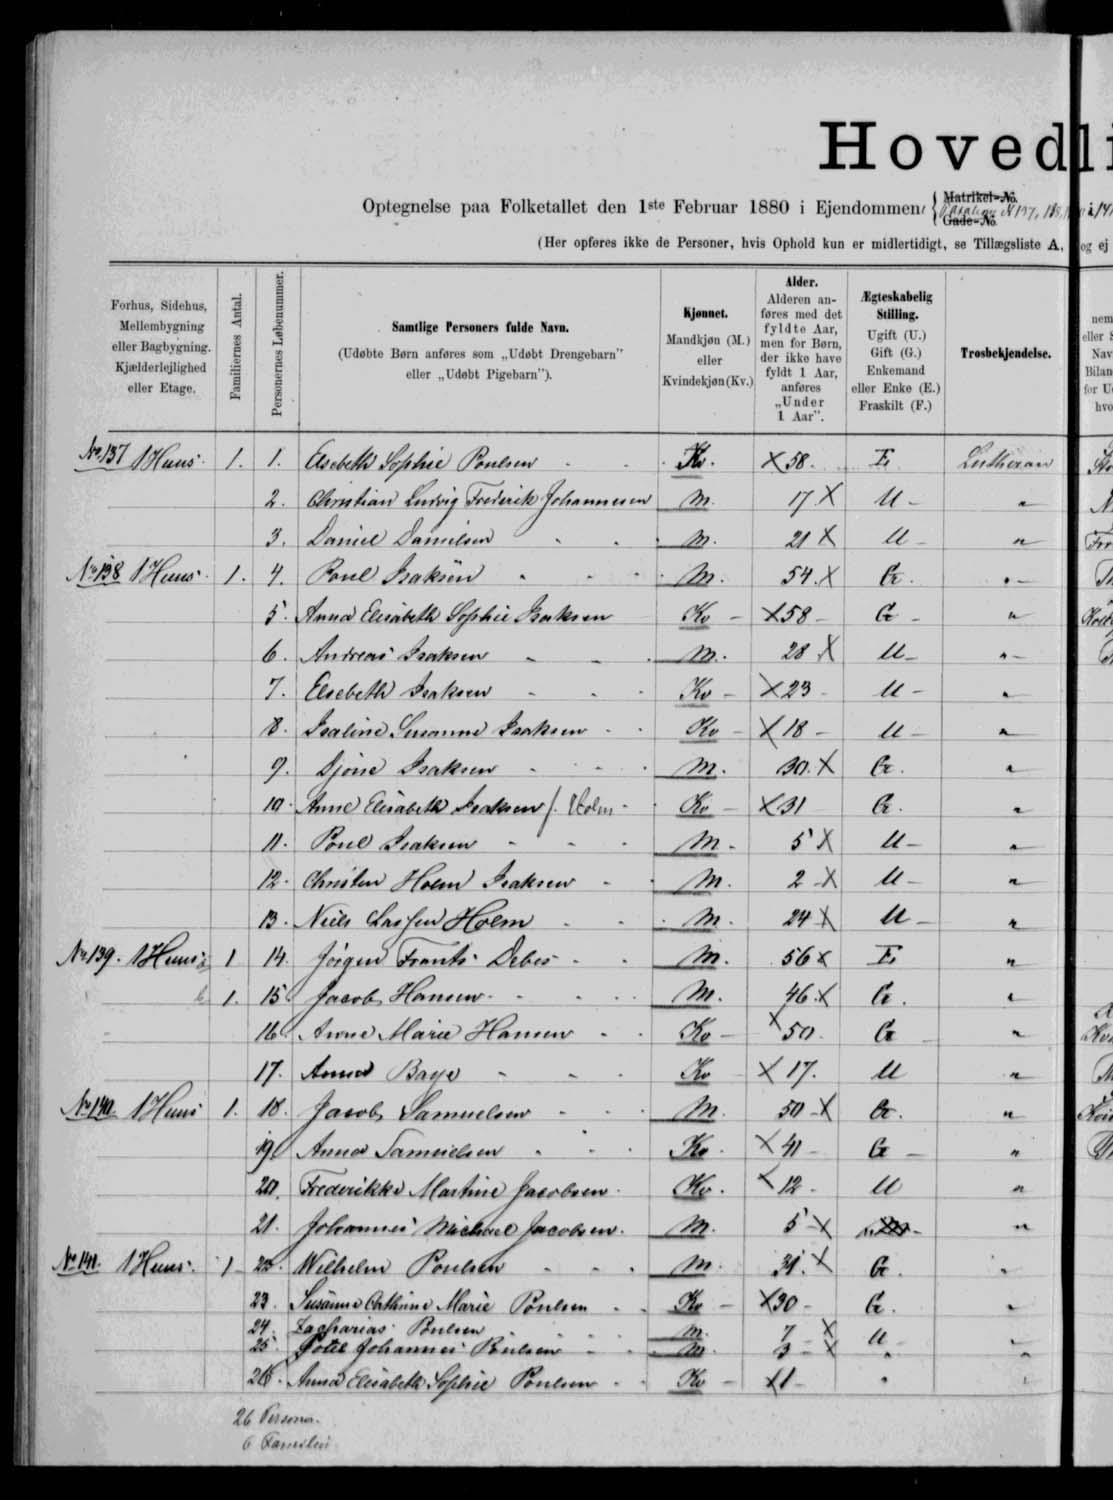 Hovedli
Optegnelse paa Folketallet den 1ste Februar 1880 i Ejendommen: { Matrikel-No. Gade-No. No 137, 138,
(Her opføres ikke de Personer, hvis Ophold kun er midlertidigt, se Tillægsliste A, og ej
Forhus, Sidehus, Mellembygning eller Bagbygning. Kjælderlejlighed eller Etage.
Familiernes Antal.
Personernes Løbenummer.
Samtlige Personers fulde Navn.
(Udøbte Børn anføres som „Udøbt Drengebarn" eller „Udøbt Pigebarn").
Kjønnet.
Mandkjøn (M.) eller Kvindekjøn (Kv.)
Alder.
Alderen anføres med det fyldte Aar, men for Børn, der ikke have fyldt 1 Aar, anføres „Under 1 Aar".
Ægteskabelig Stilling.
Ugift (U.) Gift (G.) Enkemand eller Enke (E.) Fraskilt (F.)
Trosbekjendelse.
No 137 1 Huus. 1. 1. Elsebeth Sophie Poulsen Kv. X 58. E. Lutheran
2. Christian Ludvig Frederik Johannesen M. 17 X U - "
3. Daniel Danielsen M. 21 X U - "
No 138 1 Huus. 1. 4. Poul Isaksen M. 54. X G. "
5. Anna Elisabeth Sophie Isaksen Kv - X 58 - G - "
6. Andreas Isaksen M. 28 X U - "
7. Elsebeth Isaksen Kv - X 23 - U - "
8. Isaline Susanne Isaksen Kv - X 18 - U - "
9. Djone Isaksen M. 30. X G. "
10. Anne Elisabeth Isaksen f. Holm Kv - X 31 G. "
11. Poul Isaksen M. 5 X U - "
12. Christen Holm Isaksen M. 2 - X U - "
13. Niels Lassen Holm M. 24 X U - "
No 139. 1 Huus a 1 14. Jörgen Frants Debes M. 56 X E. "
b 1. 15. Jacob Hansen M. 46. X G. "
16. Anne Marie Hansen Kv - X 50. G "
17. Anna Baye Kv X 17. U "
No 140. 1 Huus 1. 18. Jacob Samuelsen M. 50 - X G. "
19. Anna Samuelsen Kv. X 41 - G - "
20. Frederikke Martine Jacobsen Kv. X 12 - U "
21. Johannes Michael Jacobsen. M. 5 - X "
No 141. 1 Huus. 1 22. Wilhelm Poulsen M. 31. X G. "
23. Susanne Cathrine Marie Poulsen Kv - X 30 - G. "
24. Zacharias Poulsen M. 7 X U "
25. Johannes Poulsen M. 3 - X " "
26. Anna Elisabeth Sophie Poulsen Kv - X 1 - " "
26 Personer.
6 Familier